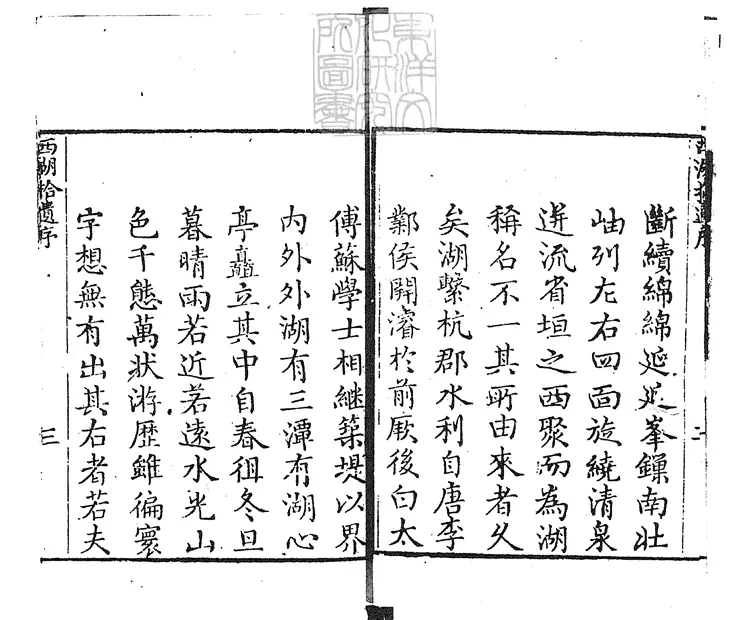 東洋文
化研究
所圖書
斷續綿綿延延峯鏁南壯
岫列左右四面旋繞清泉
迸流省垣之西聚而為湖
稱名不一其所由來者久
矣湖繫杭郡水利自唐李
鄴侯開濬於前厥後白太
傅蘇學士相繼築堤以界
内外外湖有三潭有湖心
亭矗立其中自春徂冬旦
暮晴雨若近若遠水光山
色千態萬狀游歷雖徧寰
字想無有出其右者若夫
西湖拾遺序
三